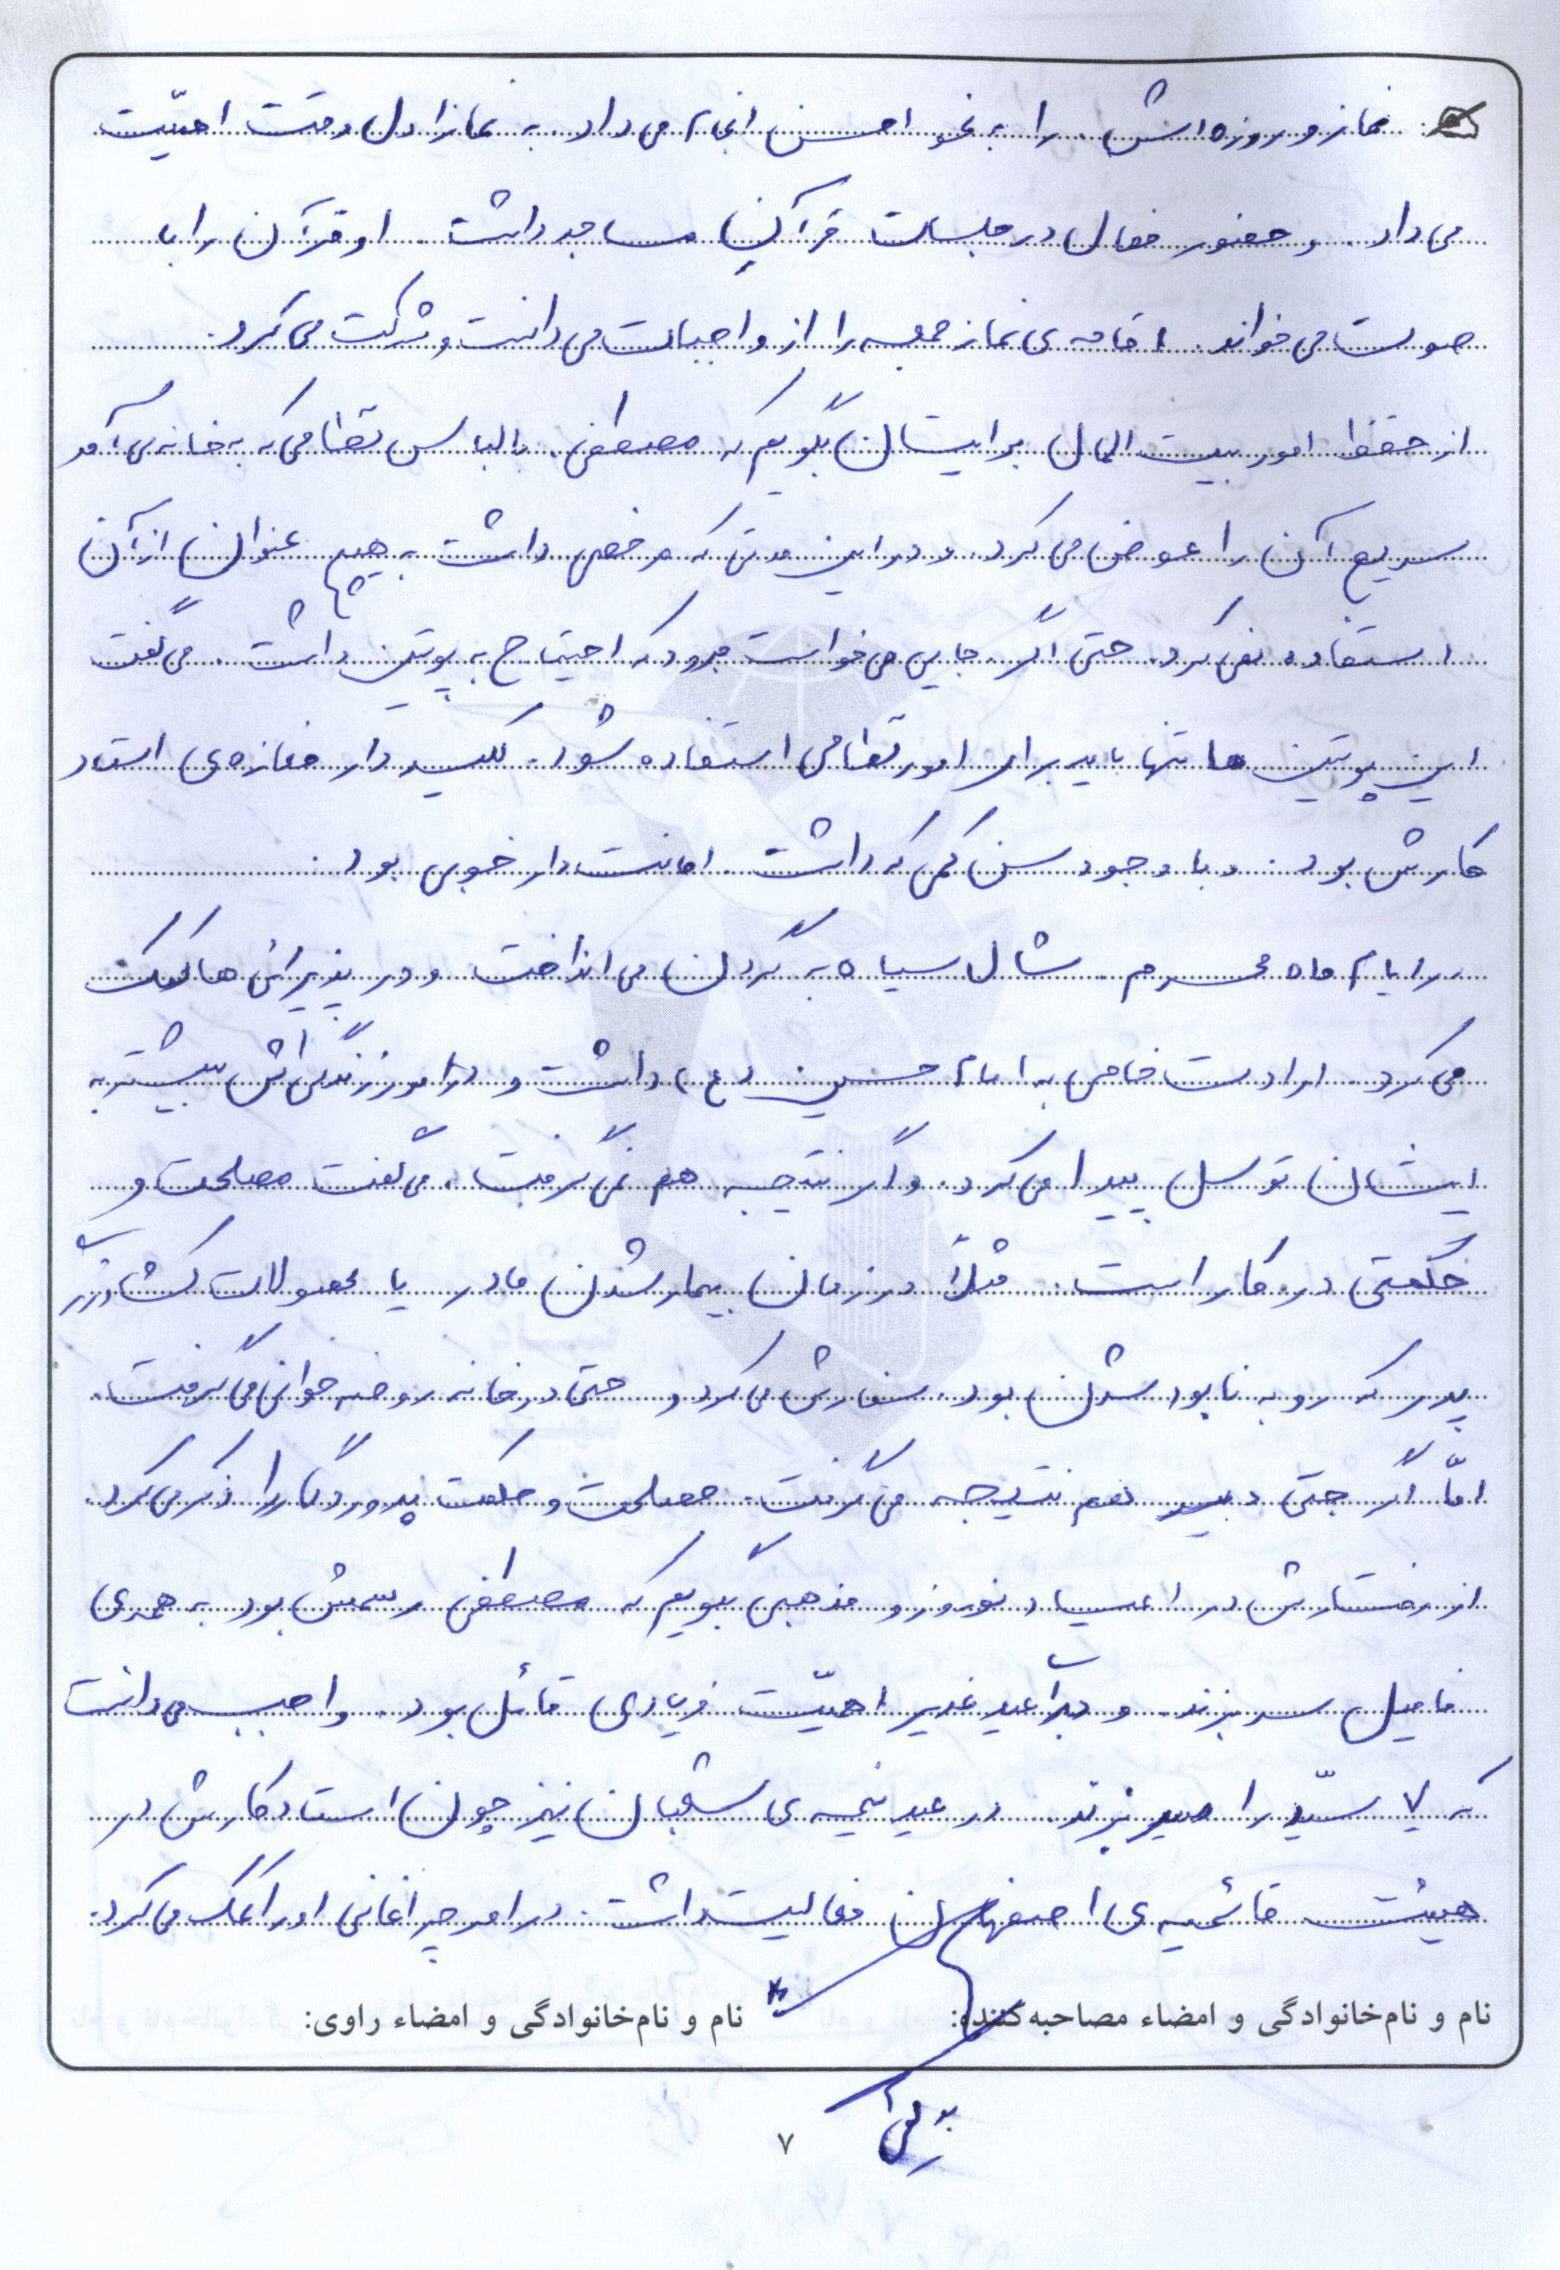 نماز و روزه اش را به نحو احسن انجام می داد. به نماز اول وقت اهمیّت
می داد. و حضور فعال در جلسات قرآنِ مساجد داشت. او قرآن را با
صوت می خواند. اقامه ی نماز جمعه را از واجبات می دانست و شرکت می کرد.
از حفظ امور بیت المال برایتان بگویم که مصطفی با لباس نظامی که به خانه می آمد
سریع آن را عوض می کرد. و در این مدتی که مرخصی داشت به هیچ عنوان از آن
استفاده نمی کرد. حتی اگر جایی می خواست برود که احتیاج به پوتین داشت. می گفت
این پوتین ها تنها باید برای امور نظامی استفاده شود. کلید دار مغازه ی استاد
کارش بود. و با وجود سن کمی که داشت امانت دار خوبی بود.
در ایام ماه محرم شال سیاه به گردن می انداخت و در پذیرائی ها کمک
می کرد. ارادت خاصی به امام حسین (ع) داشت و در امور زندگی اش بیشتر به
ایشان توسل پیدا می کرد. و اگر نتیجه هم نمی گرفت، می گفت مصلحت و
حکمتی در کار است. مثلاً در زمان بیمار شدن مادر یا محصولات کشاورزی
پدر که رو به نابود شدن بود. سفارش می کرد و حتی در خانه روضه خوانی می گرفت.
امّا اگر حتی هم نتیجه می گرفت. مصلحت و حکمت پروردگار را ذکر می کرد.
از رفتارش در اعیاد نوروز و مذهبی بگویم که مصطفی رسمش بود به همه ی
فامیل سر بزند. و برای عید غدیر اهمیّت زیادی قائل بود. واجب می دانست
که ۷ سیّد را سر بزند. در عید نیمه ی شعبان نیز چون استاد کارش در
هیئت قائمیه ی اصفهان فعالیت داشت. در امر چراغانی او را کمک می کرد.
نام و نام‌خانوادگی و امضاء مصاحبه‌کننده: نام و نام‌خانوادگی و امضاء راوی:
۷